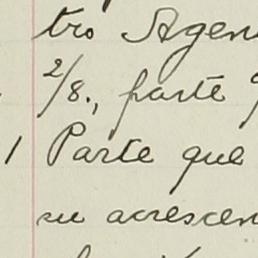 tro Agen
2/8., parte
1 Parte que
su acrescen